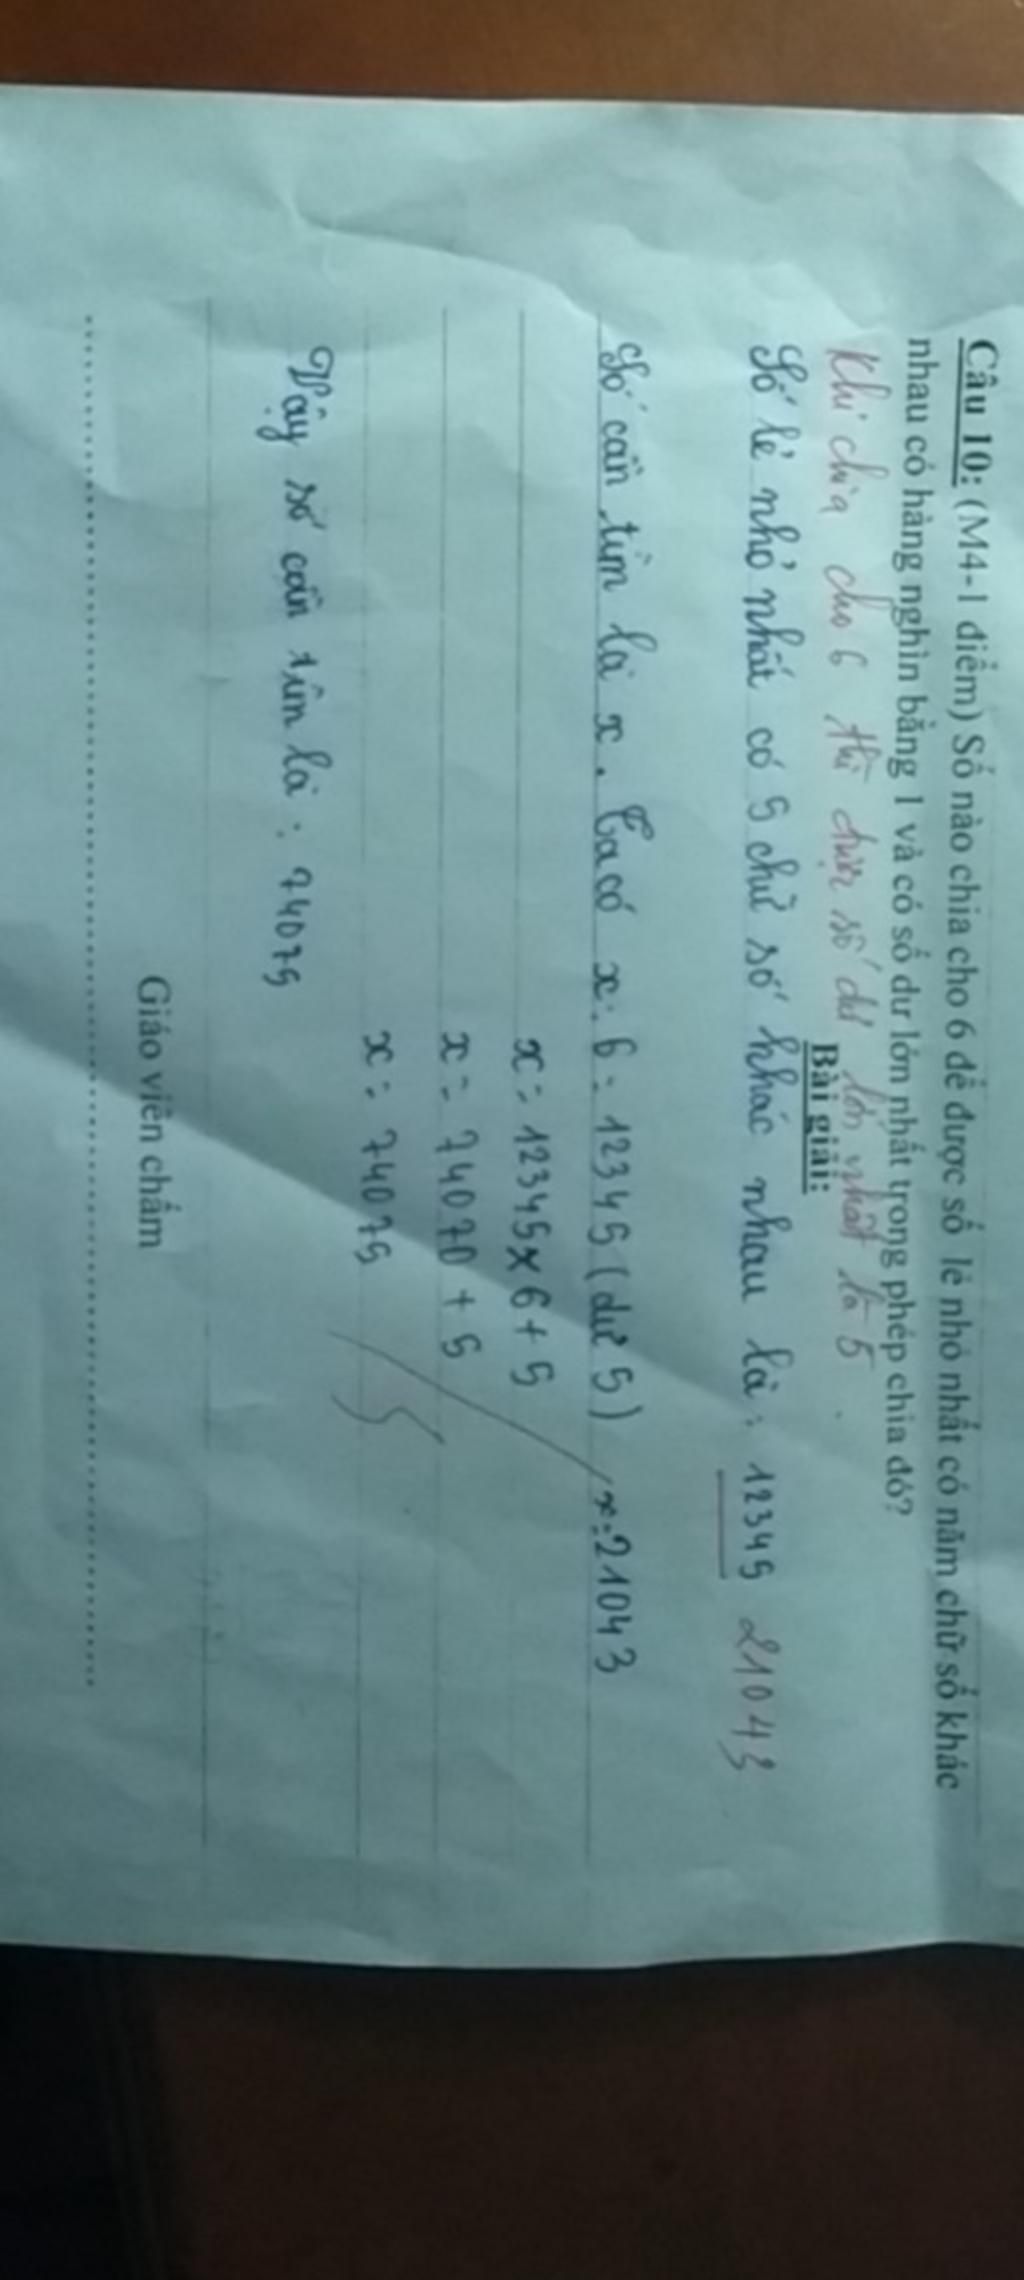 Câu 10: (M4-1 điểm) Số nào chia cho 6 để được số lẻ nhỏ nhất có năm chữ số khác
nhau có hàng nghìn bằng 1 và có số dư lớn nhất trong phép chia đó?
Khi chia cho 6 thì được số dư lớn nhất là 5.
Bài giải:
Số lẻ nhỏ nhất có 5 chữ số khác nhau là: 12345 21043
Số cần tìm là x. Ta có x : 6 = 12345 (dư 5) x = 21043
x = 12345 x 6 + 5
x = 74070 + 5
x = 74075
Vậy số cần tìm là: 74075
Giáo viên chấm